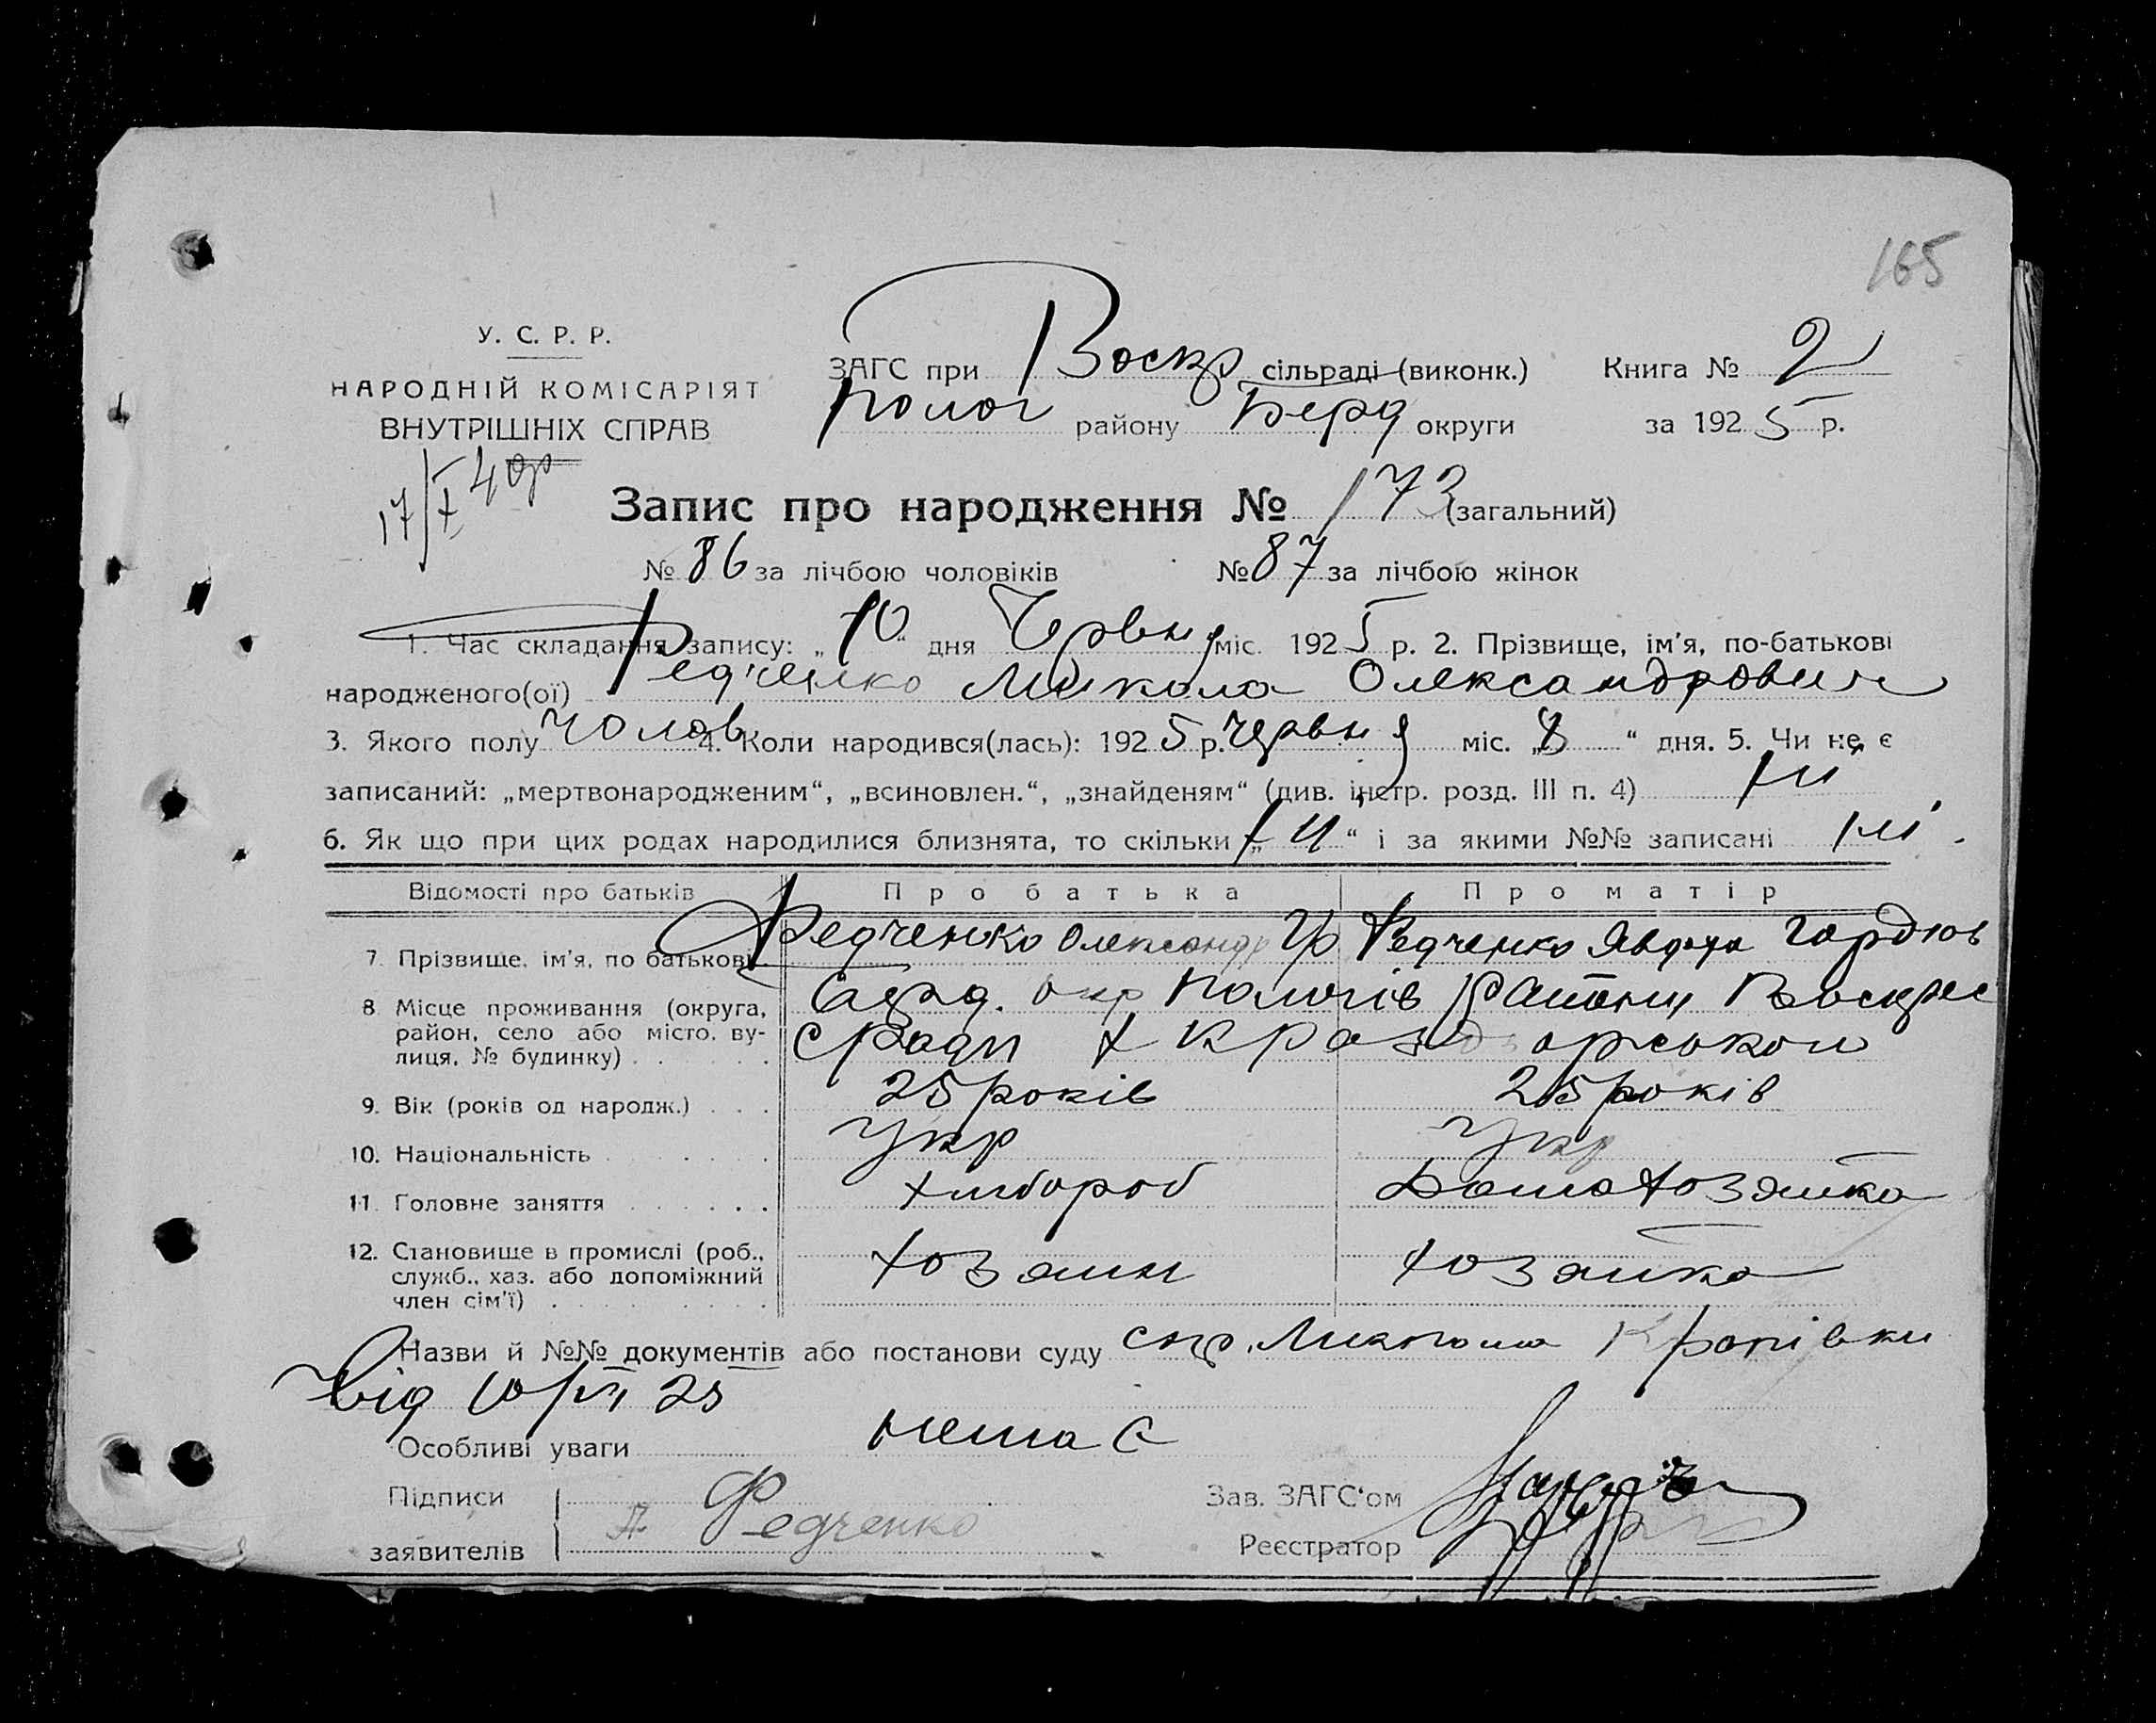 165
У. С. Р. Р.
НАРОДНІЙ КОМІСАРІЯТ
ВНУТРІШНІХ СПРАВ
ЗАГС при Воскр сільраді (виконк.) Книга № 2
Полог району Берд округи за 1925 р.
17/X 4
Запис про народження № 173 (загальний)
№ 86 за лічбою чоловіків № 87 за лічбою жінок
1. Час складання запису: „10“ дня Червня міс. 1925 р. 2. Прізвище, ім'я, по-батькові
народженого(ої) Федченко Микола Олександрович
3. Якого полу чолов 4. Коли народився(лась): 1925 р. червня міс. „8“ дня. 5. Чи не є
записаний: „мертвонародженим“, „всиновлен.“, „знайденям“ (див. інстр. розд. III п. 4) ні
6. Як що при цих родах народилися близнята, то скільки „ні“ і за якими №№ записані ні.
Відомості про батьків Про батька Про матір
7. Прізвище, ім'я, по батькові Федченко Олександр Гр Федченко Явдоха Гордіов
8. Місце проживання (округа, район, село або місто, вулиця, № будинку) Берд. окр Пологів Району Воскрес
с ради х
9. Вік (років од народж.) 25 років 25 років
10. Національність Укр Укр
11. Головне заняття хлібороб Домахозяйка
12. Становище в промислі (роб., служб., хаз. або допоміжний член сім'ї) хозяин хозяйка
Назви й №№ документів або постанови суду Кропівки
від 10/VI 25
Особливі уваги немає
Підписи
заявителів А Федченко
Зав. ЗАГС'ом
Реєстратор